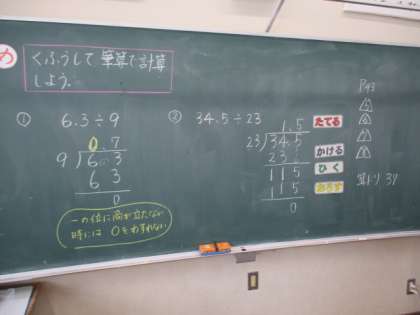 め
くふうして 筆算で計算
しよう.
① 6.3÷9
0.7
9)6.3
6 3
0
一の位に商が立たない
時には 0をわすれない
② 34.5÷23
1.5
23)34.5
23
115
115
0
たてる
かける
ひく
おろす
P43